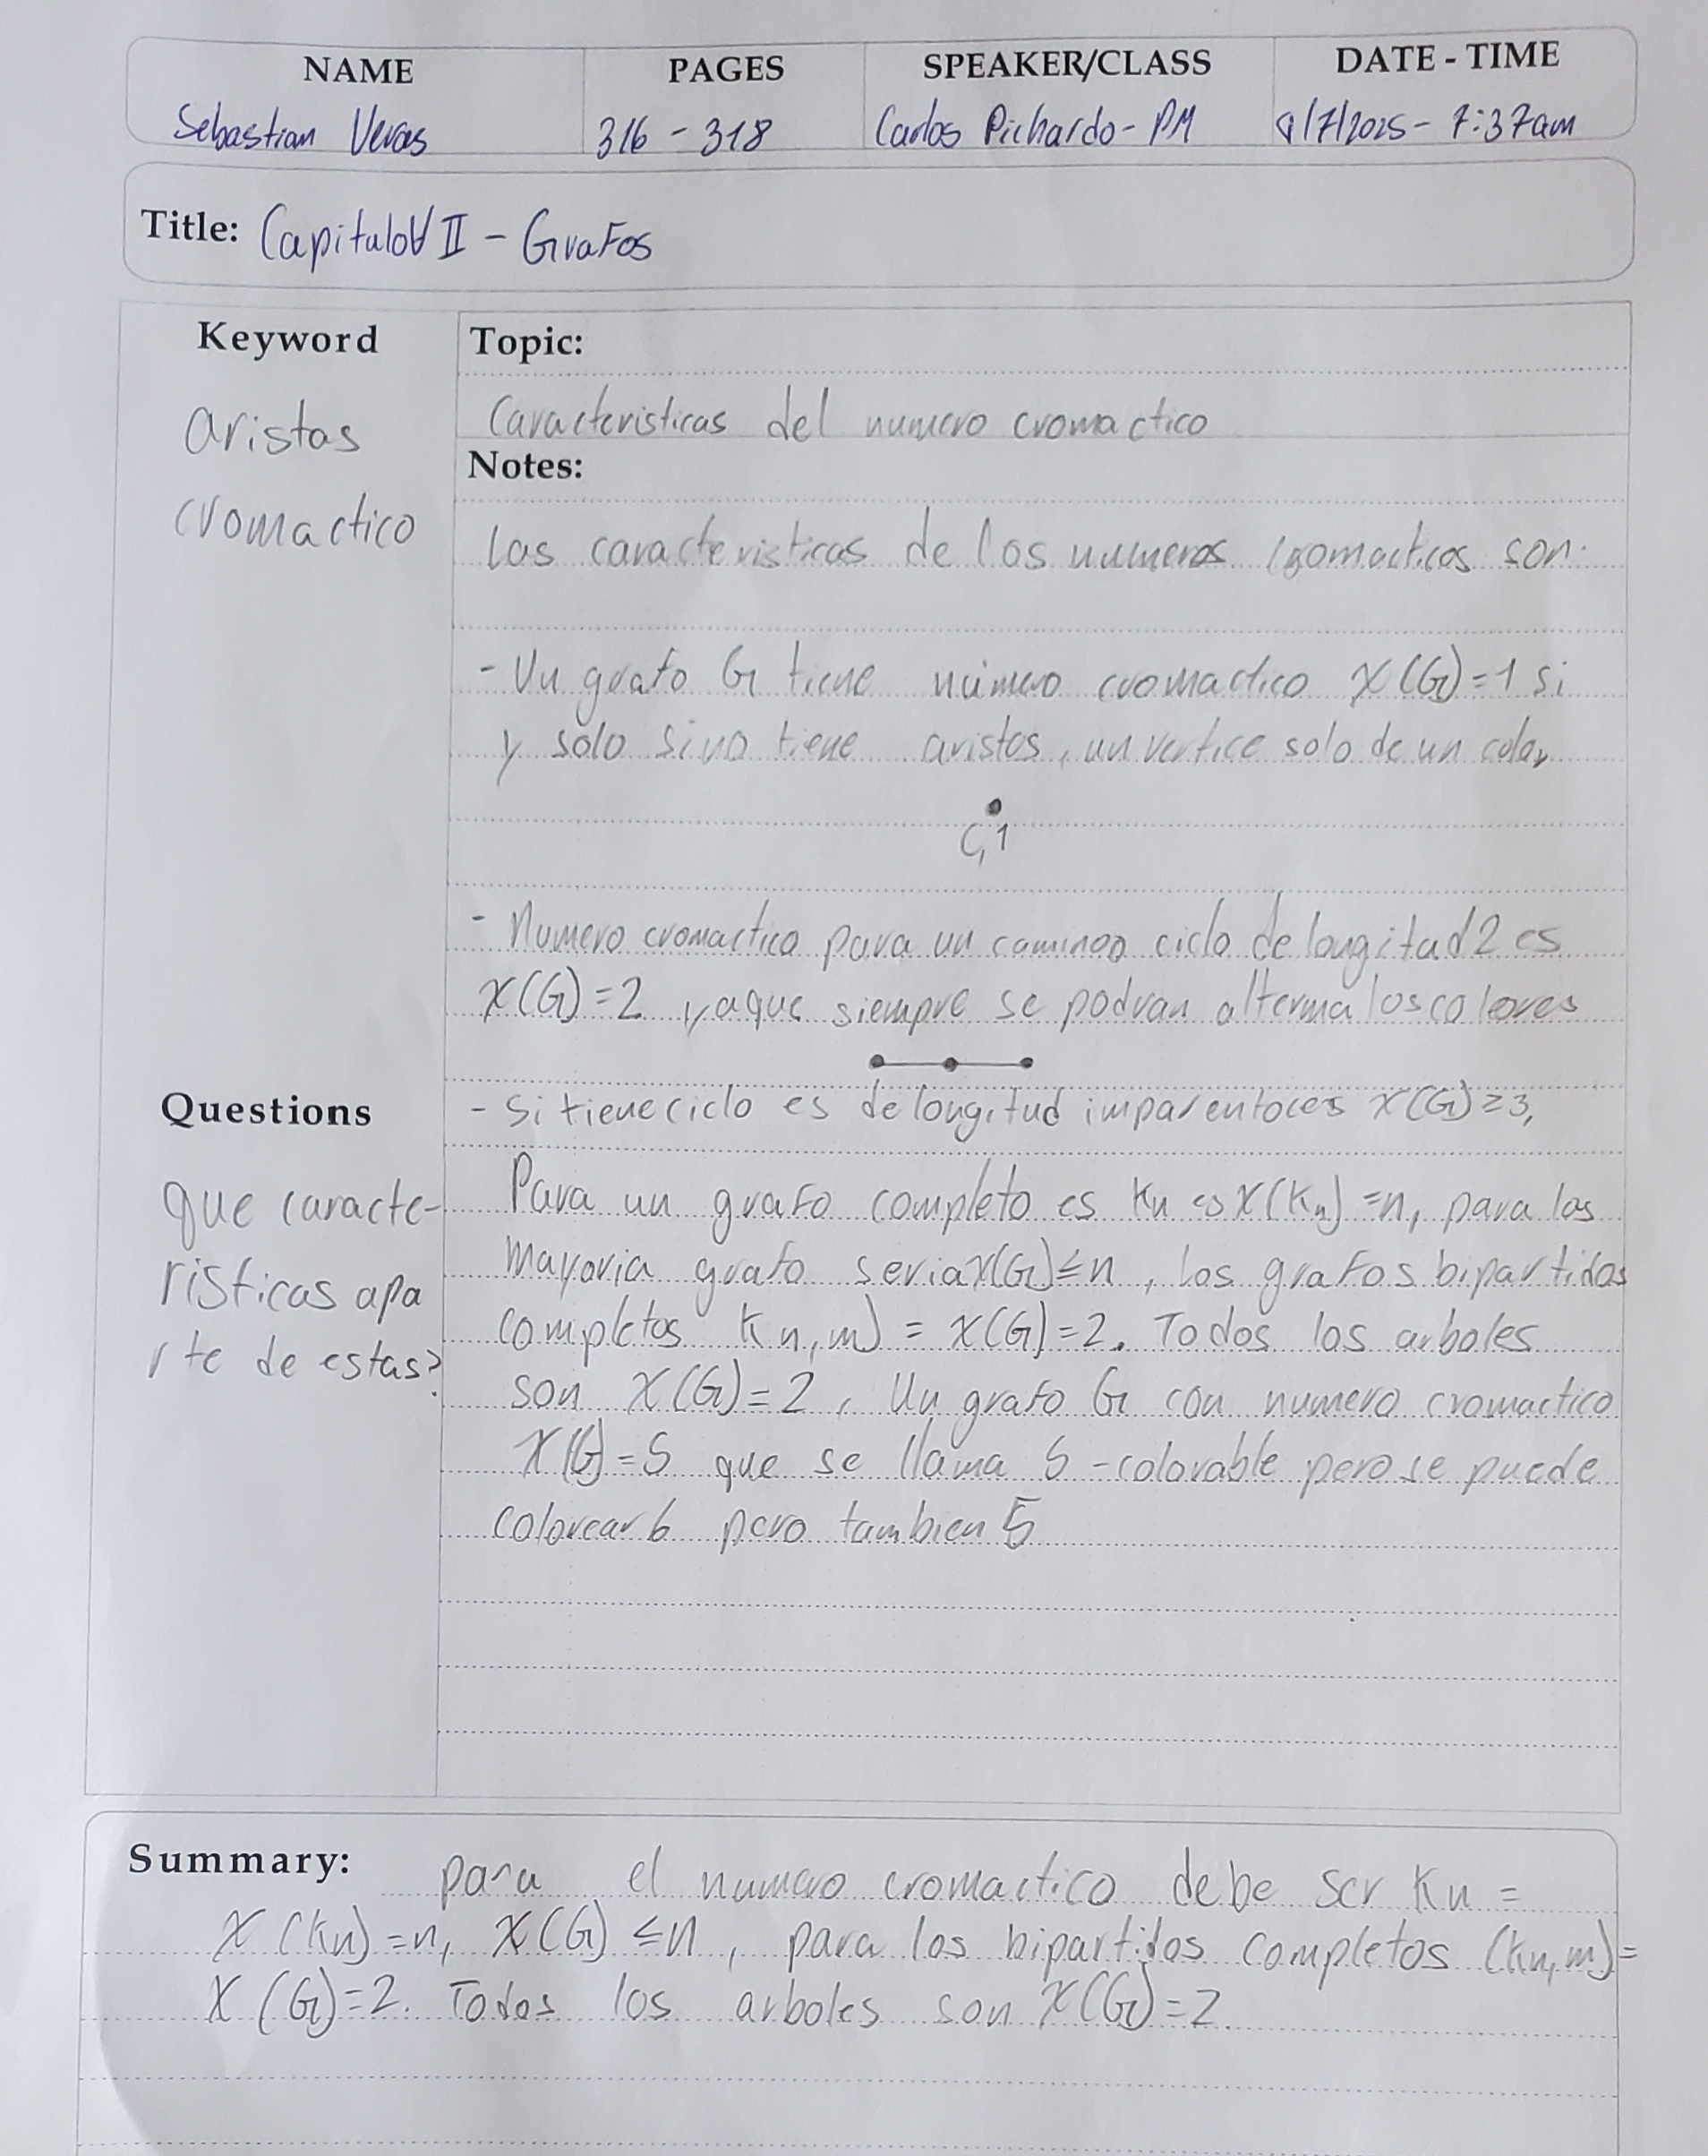 NAME PAGES SPEAKER/CLASS DATE - TIME
Sebastian Veras 316 - 318 Carlos Pichardo - PM 9/7/2025 - 7:37am
Title: Capitulo VII - Grafos
Keyword
aristas
cromactico
Topic:
Caracteristicas del numero cromactico
Notes:
Las caracteristicas de los numeros cromacticos son:
- Un grafo G tiene número cromactico X(G)=1 si
y solo si no tiene aristas, un vertice solo de un color
C,1
- Numero cromactico para un camino o ciclo de longitud 2 es
X(G)=2 ya que siempre se podran alterna los colores
- Si tiene ciclo es de longitud impar entoces X(G)≥3,
Para un grafo completo es Kn es X(Kn)=n, para las
mayoria grafo seria X(G)≤n, los grafos bipartidos
completos Kn,m) = X(G)=2. Todos los arboles
son X(G)=2, Un grafo G con numero cromactico
X(G)=5 que se llama 5-colorable pero se puede
colorear 6 pero tambien 5
Questions
que caracte-
risticas apa
rte de estas?
Summary: para el numero cromactico debe ser Kn =
X(Kn)=n, X(G)≤n, para los bipartidos completos (Kn,m)=
X(G)=2. Todos los arboles son X(G)=2.